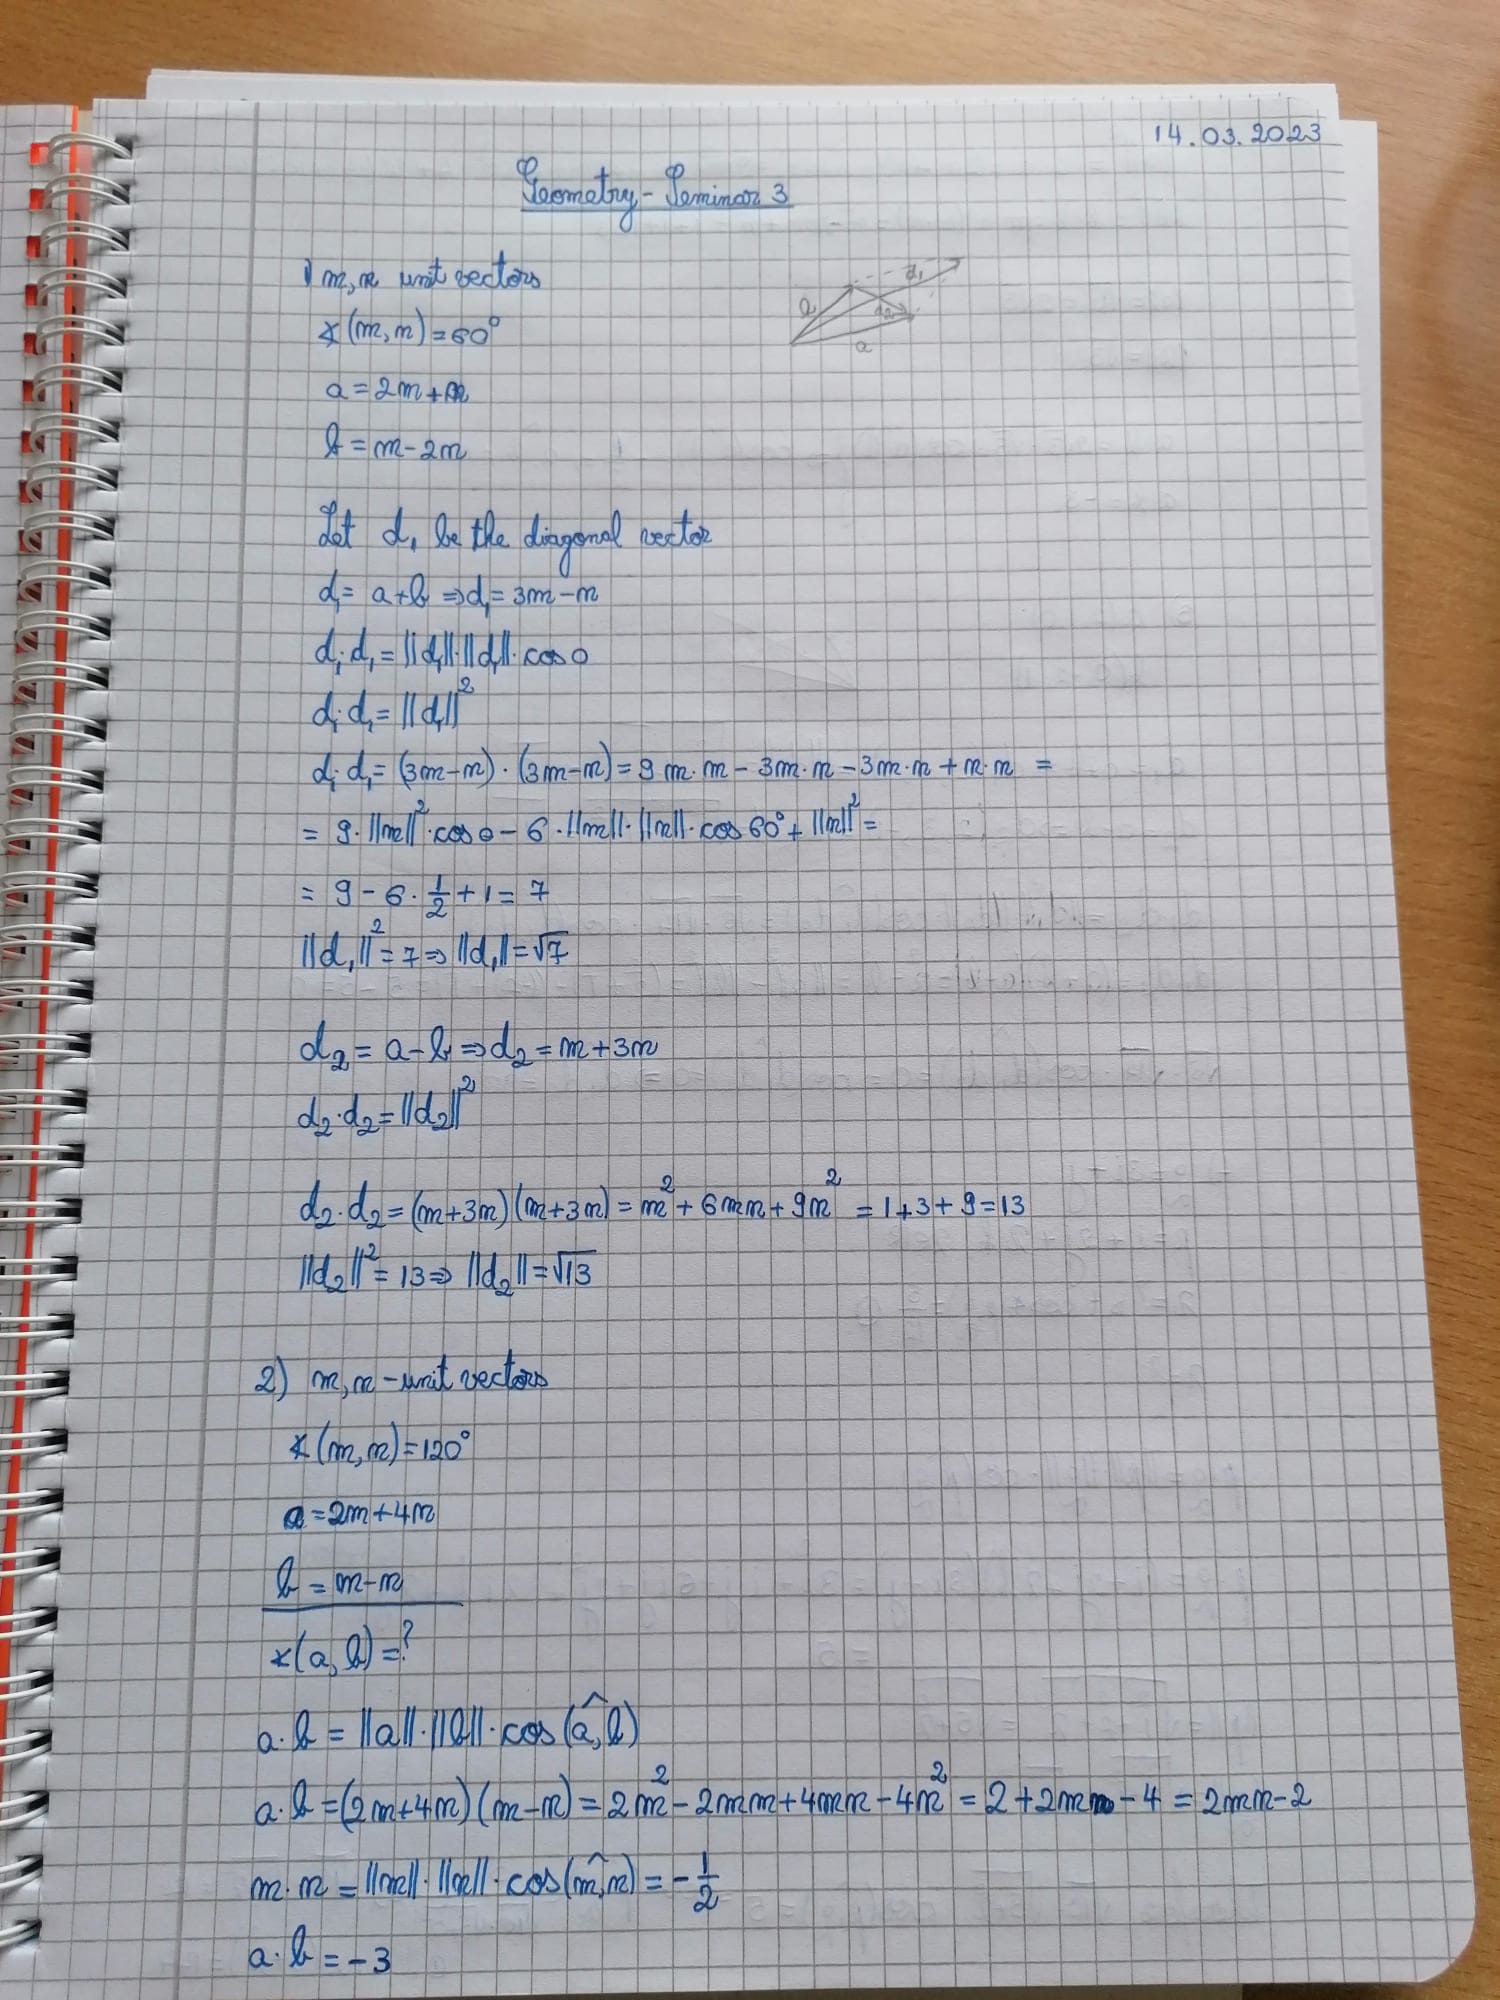 14.03.2023
Geometry - Seminar 3
1) m, n unit vectors
∢(m, n) = 60°
a = 2m + n
b = m - 2n
b
a
d₁
d₂
Let d₁ be the diagonal vector
d₁ = a+b ⇒ d₁ = 3m - n
d₁·d₁ = ||d₁||·||d₁||·cos 0
d₁·d₁ = ||d₁||²
d₁·d₁ = (3m-n)·(3m-n) = 9 m·m - 3m·n - 3m·n + n·n =
= 9·||m||²·cos 0 - 6·||m||·||n||·cos 60° + ||n||² =
= 9 - 6·1/2 + 1 = 7
||d₁||² = 7 ⇒ ||d₁|| = √7
d₂ = a - b ⇒ d₂ = m + 3n
d₂·d₂ = ||d₂||²
d₂·d₂ = (m+3n)(m+3n) = m² + 6mn + 9n² = 1+3+9 = 13
||d₂||² = 13 ⇒ ||d₂|| = √13
2) m, n - unit vectors
∢(m, n) = 120°
a = 2m + 4n
b = m - n
∢(a, b) = ?
a·b = ||a||·||b||·cos(a,^b)
a·b = (2m+4n)(m-n) = 2m² - 2mn + 4mn - 4n² = 2 + 2mn - 4 = 2mn - 2
m·n = ||m||·||n||·cos(m,^n) = -1/2
a·b = -3